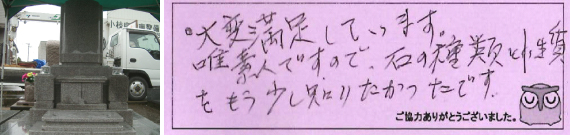 。大変満足しています。
唯素人ですので、石の種類と性質
をもう少し知りたかったです。
ご協力ありがとうございました。